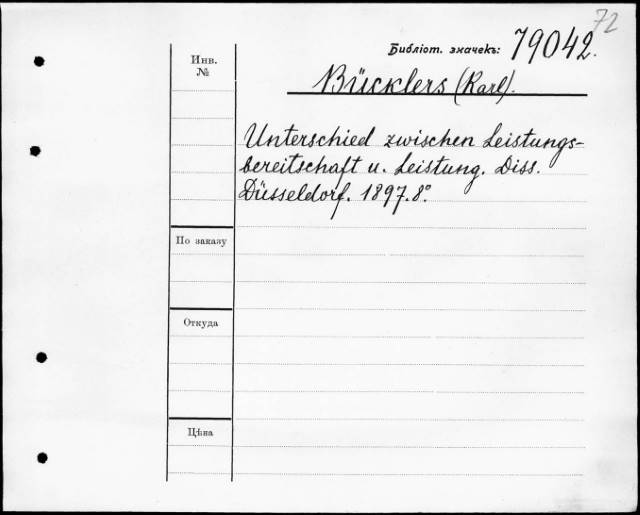 72
Библіот. значекъ: 79042.
Инв.
№
Bücklers (Karl).
Unterschied zwischen Leistungs-
bereitschaft u. Leistung. Diss.
Düsseldorf. 1897. 8°.
По заказу
Откуда
Цѣна